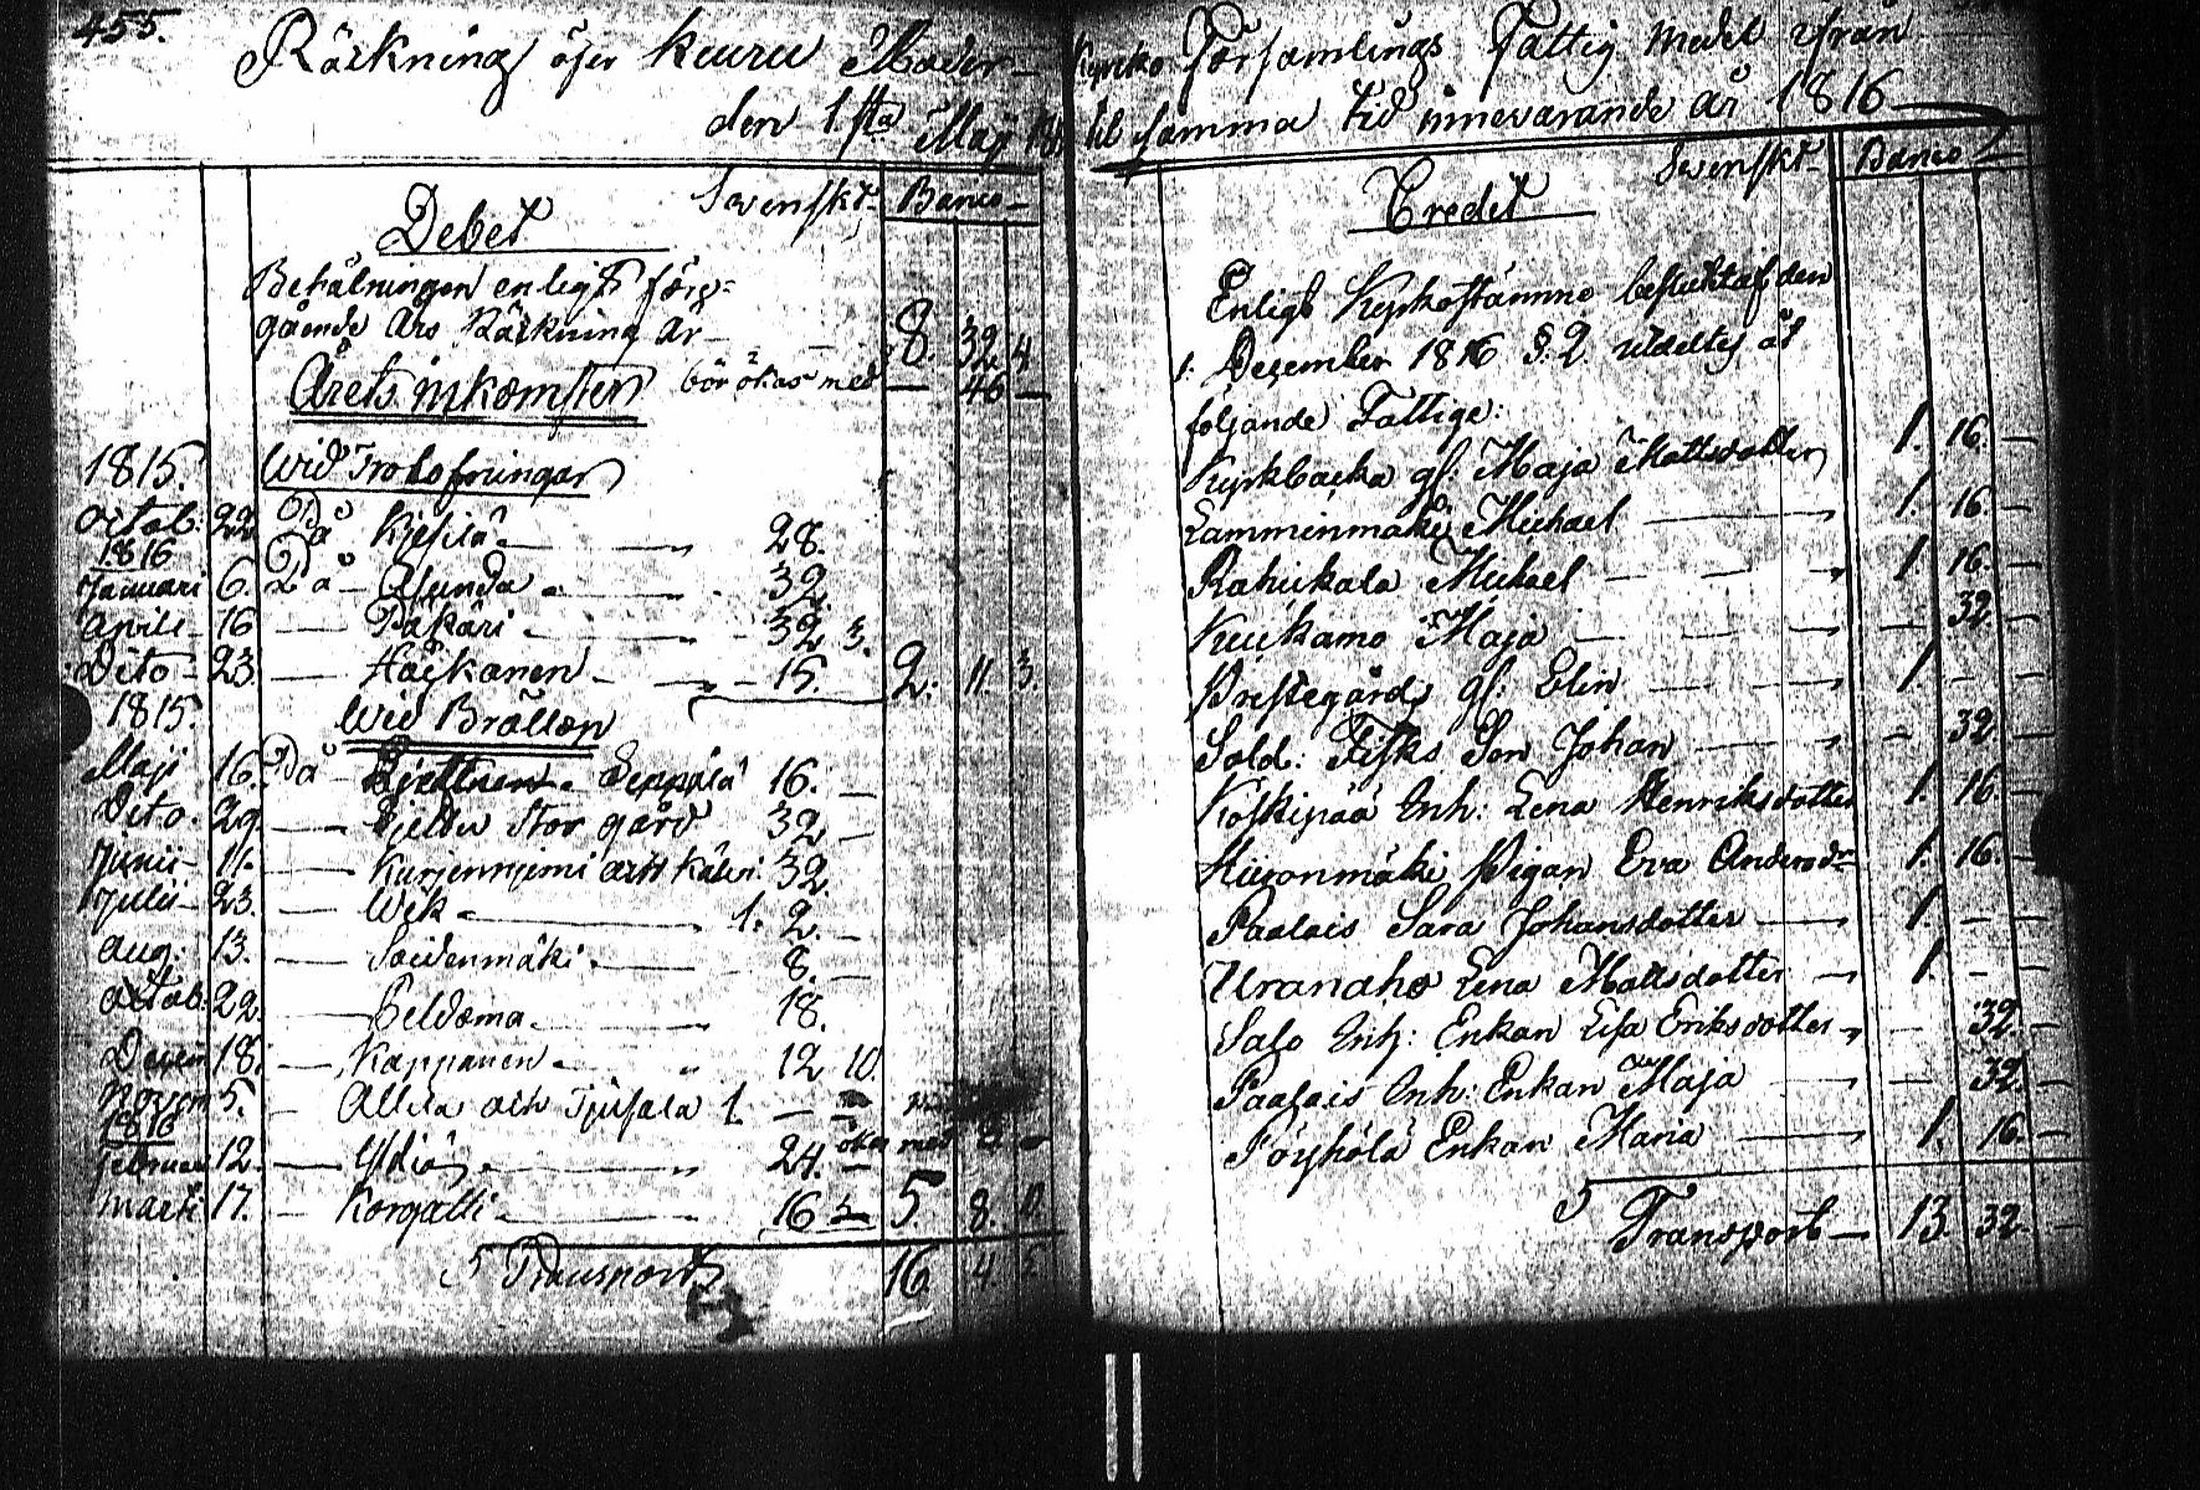 455.
Räckning öfer Kuuru Moder-
den 1.sta Maij 181
Debet
Swenskt
Banco
Behålningen enligt föreg=
gående års Räckning är — 8. 32 4.
Årets inkomster bör ökas med — 46 —
1815. Wid Trolofningar
Octob: 22 På Kjesilä — 28.
1816
Januari 6. På — Asunda — 32
April 16 — Päkäri — 32 3.
Dito 23. — Häjkänen — 15. 2. 11. 3.
1815. Wid Bröllop
Maji 16. På Seppälä 16. —
Dito. 29. — Stor gård 32 —
Junii 11. — Kurjenniemi och 32.
Julii 23. — Wik — 1. 2. —
Aug: 13. — Soidenmäki — 8. —
Octob: 22. — Peldoma — 18.
Decem 18. — Kappanen — 12 10.
Novem 5. — Allila och 1. —
1816
Februari 12. — 24. —
Marti 17. — Korpatti — 16 5. 8.
Transport 16. 4.
Kyrko Församlings Fattig medel ifrån
til samma tid innevarande år 1816
Credit
Swenskt
Banco
Enligt Kyrkostämmo beslut af den
1: Desember 1816 §. 2. utdeltes åt
följande Fattige:
Kyrkbacka gf: Maja Mattsdotter 1. 16. —
Lamminmäki Michael — 1. 16. —
Rahukala Michael — 1. 16. —
Kuukamo Maja — — 32
Prestegårds gf: Elin — 1. — —
Sold: Fisks Son Johan — — 32
Koskipää Inh: Lena Henriksdotter 1. 16. —
Hironmäki Pigan Eva Andersdr 1. 16. —
Paalais Sara Johansdotter — 1. — —
Uranaho Lena Mattsdotter — 1. — —
Salo Inh: Enkan Lisa Eriksdotter — — 32. —
Paalais Inh: Enkan Maja — — 32. —
Pöyhölä Enkan Maria — 1. 16. —
Transport — 13. 32. —